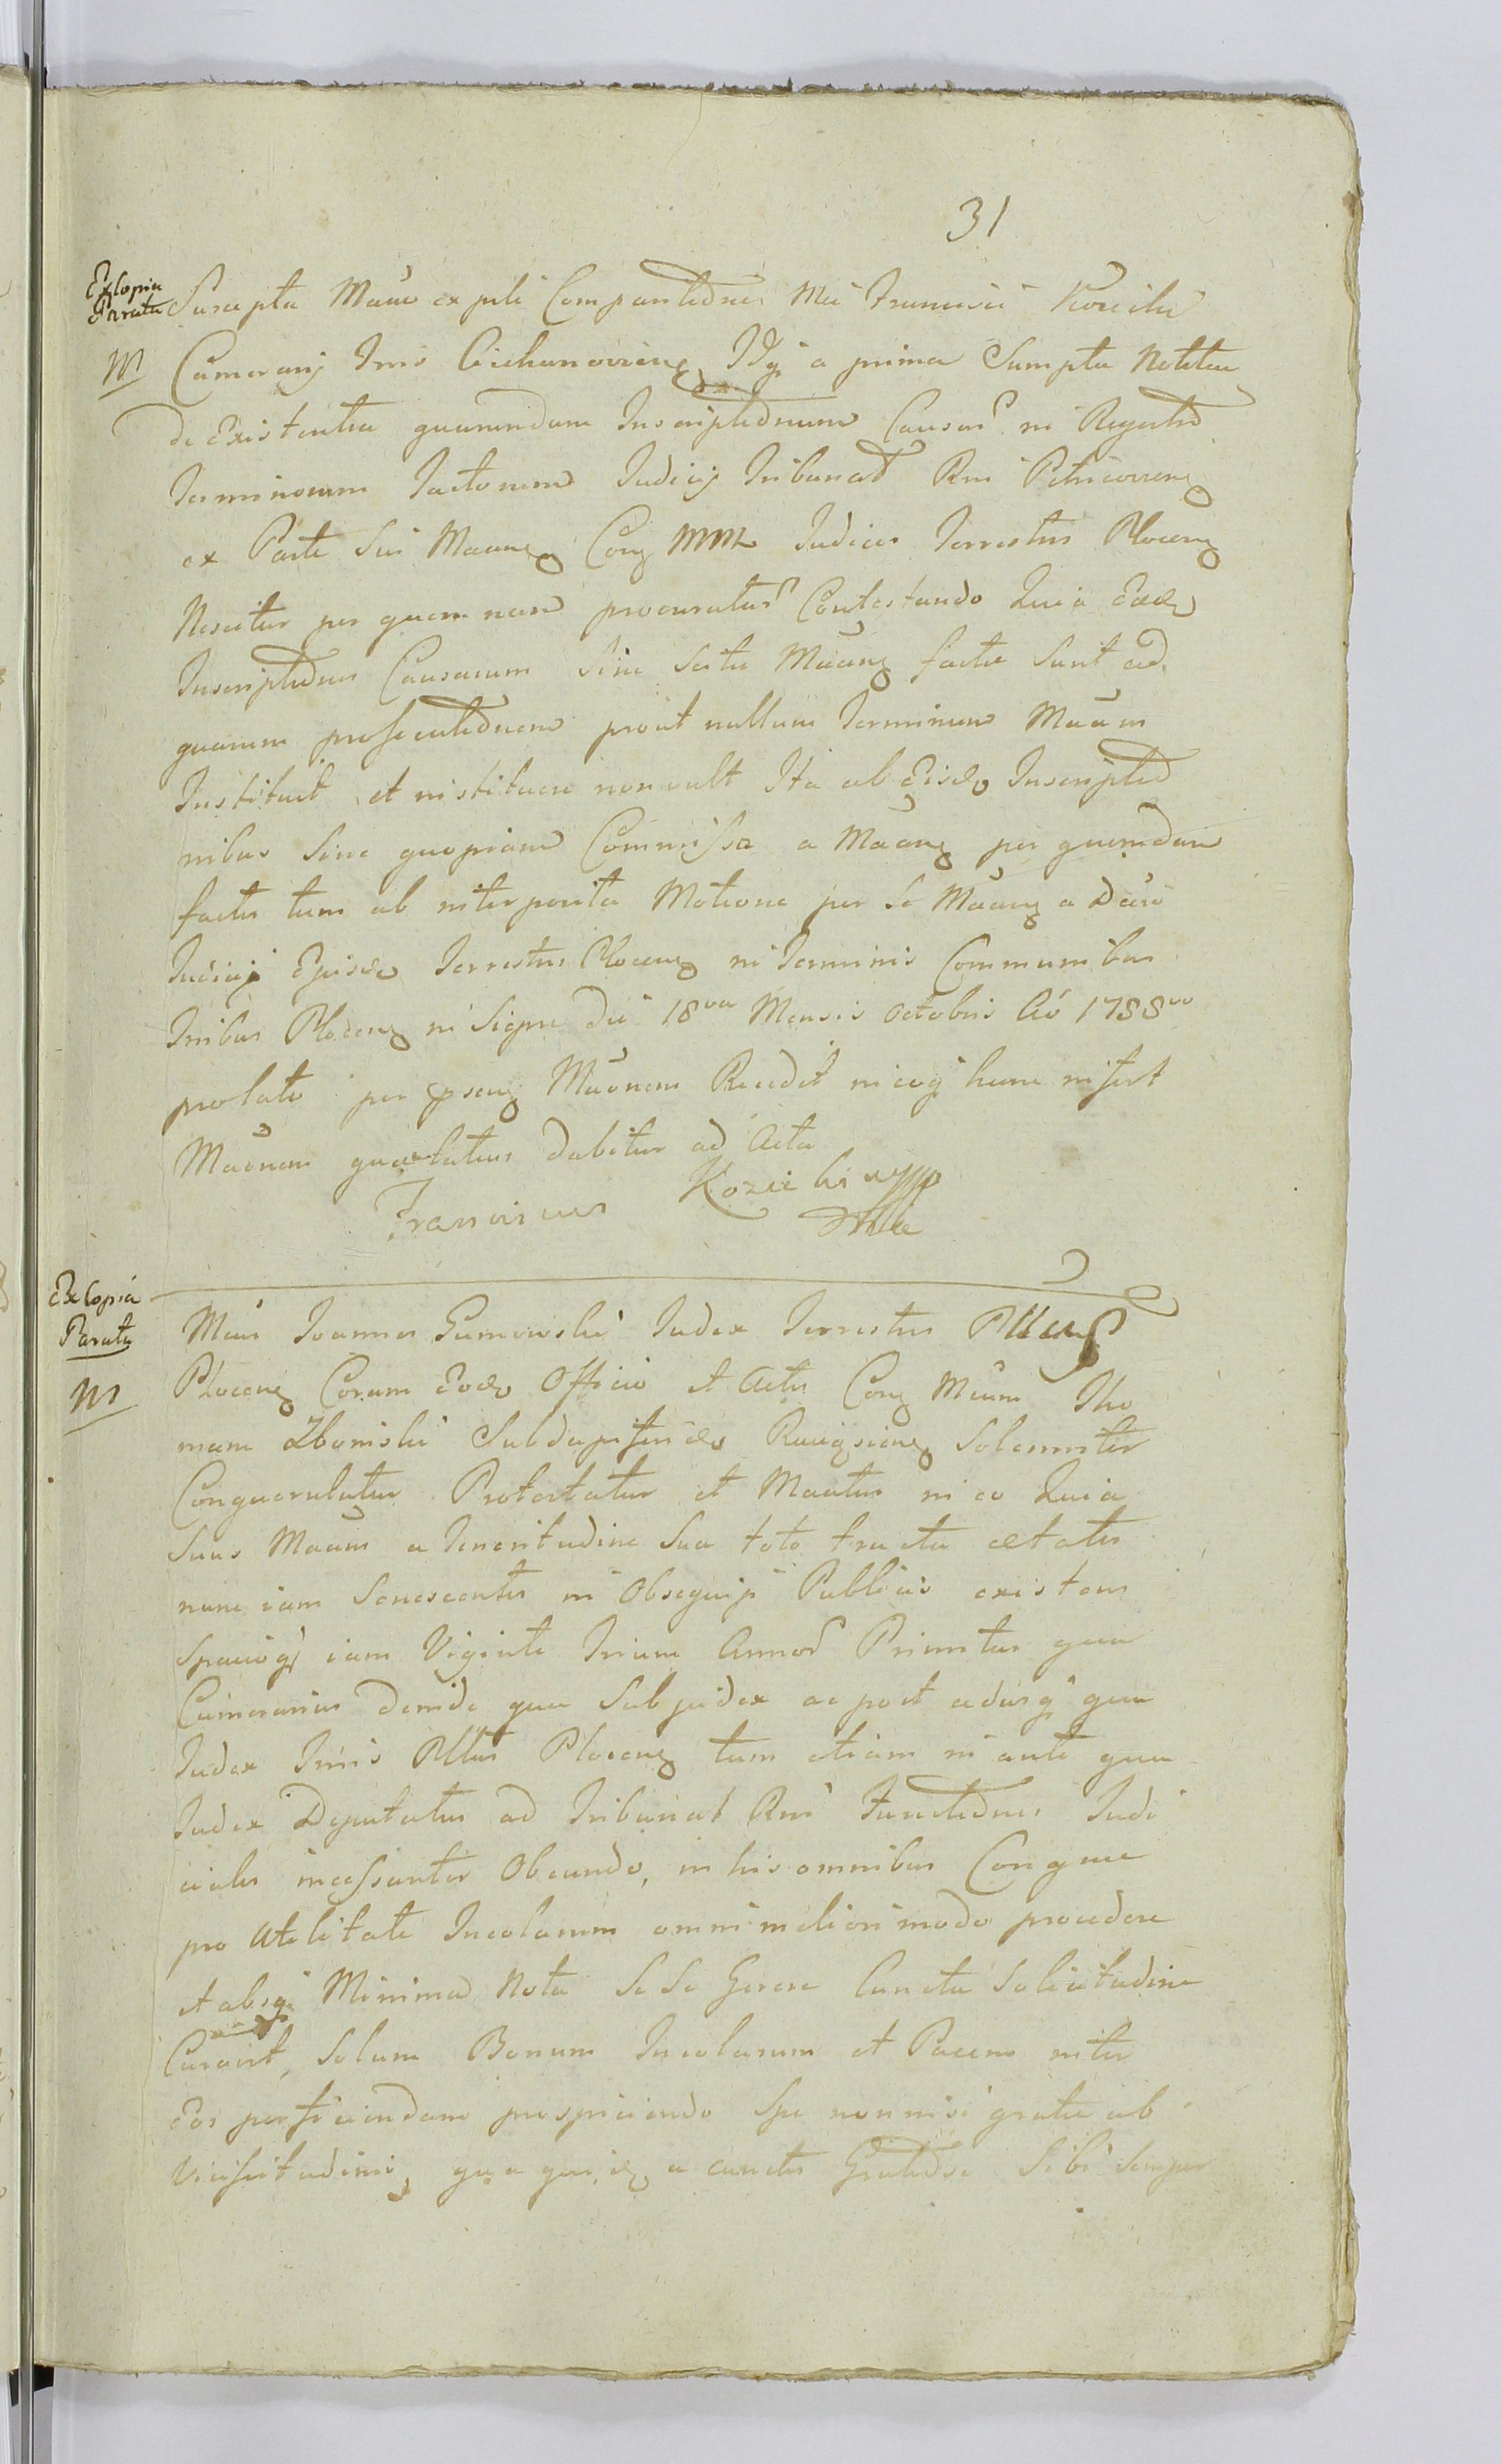 31
Ex Copia
Parata
M
Suscepta Mãao ex psti Compartiõnes Mci Francisci Kozicki
Camerarij Trris Ciechanoviens, Idq a prima Sumpta Notitia
de Existentia quarundam Inscriptionum Causar in Regestro
Terminorum Tactorum Judicij Tribunal Rni Petricoviens
ex Parte Sui Maans Cong MM Judices Terrestres Plocens
Nescitur per quem nam procuratas Contestando Quia Eaed
Inscriptiones Causarum Sine Scitu Mãans factae Sunt ad
quarum prosecutionem prout nullum Terminum Mãans
Instituit et instituere non vult Ita ab Eisd Inscriptio
nibus Sine quopiam Commisso a Maans per quemdam
factis tum ab interposita Motione per Se Maans a Dcto
Judicij Ejusd Terrestris Plocens in Terminis Communibus
Trribus Plocens in Signe die 18va Mensis Octobris Ao 1788vo
prolato per epsens Mãonem Recedit nicq hanc infert
Mãonem quae latius dabitur ad Acta
Franciscus Kozicki
Ex Copia
Parata
M
Mcus Joannes Gumowski Judex Terrestris Pllus
Plocens Coram Eod Officio et Actis Cong Mcum Tho
mam Zboinski Subdapiferid Raciąziens Solemniter
Conquerulatur Protestatur et Maatur in eo Quia
Suus Maans a Teneritudine Sua toto tractu aetatis
nunc iam Senescentis in Obsequiji Publicis existens
Spacioq iam Viginti Trium Annor Primitus qua
Camerarius deinde qua Subjudex ac post adusq qua
Judex Trris Pllus Plocens tum etiam in ante qua
Judex Deputatus ad Tribunal Rni Functiones Judi
ciales incessanter Obeundo, in his omnibus Congrue
pro Utilitate Incolarum omni meliori modo procedere
et absq Minima Nota Se Se Gerere Cuncta Solicitudine
Curavit, Solum Bonum Incolarum et Pacem inter
Eos perficiendam prospiciendo Spe non nisi gratae ab
Vicissitudinis, qua a cunctis Sibi Semper